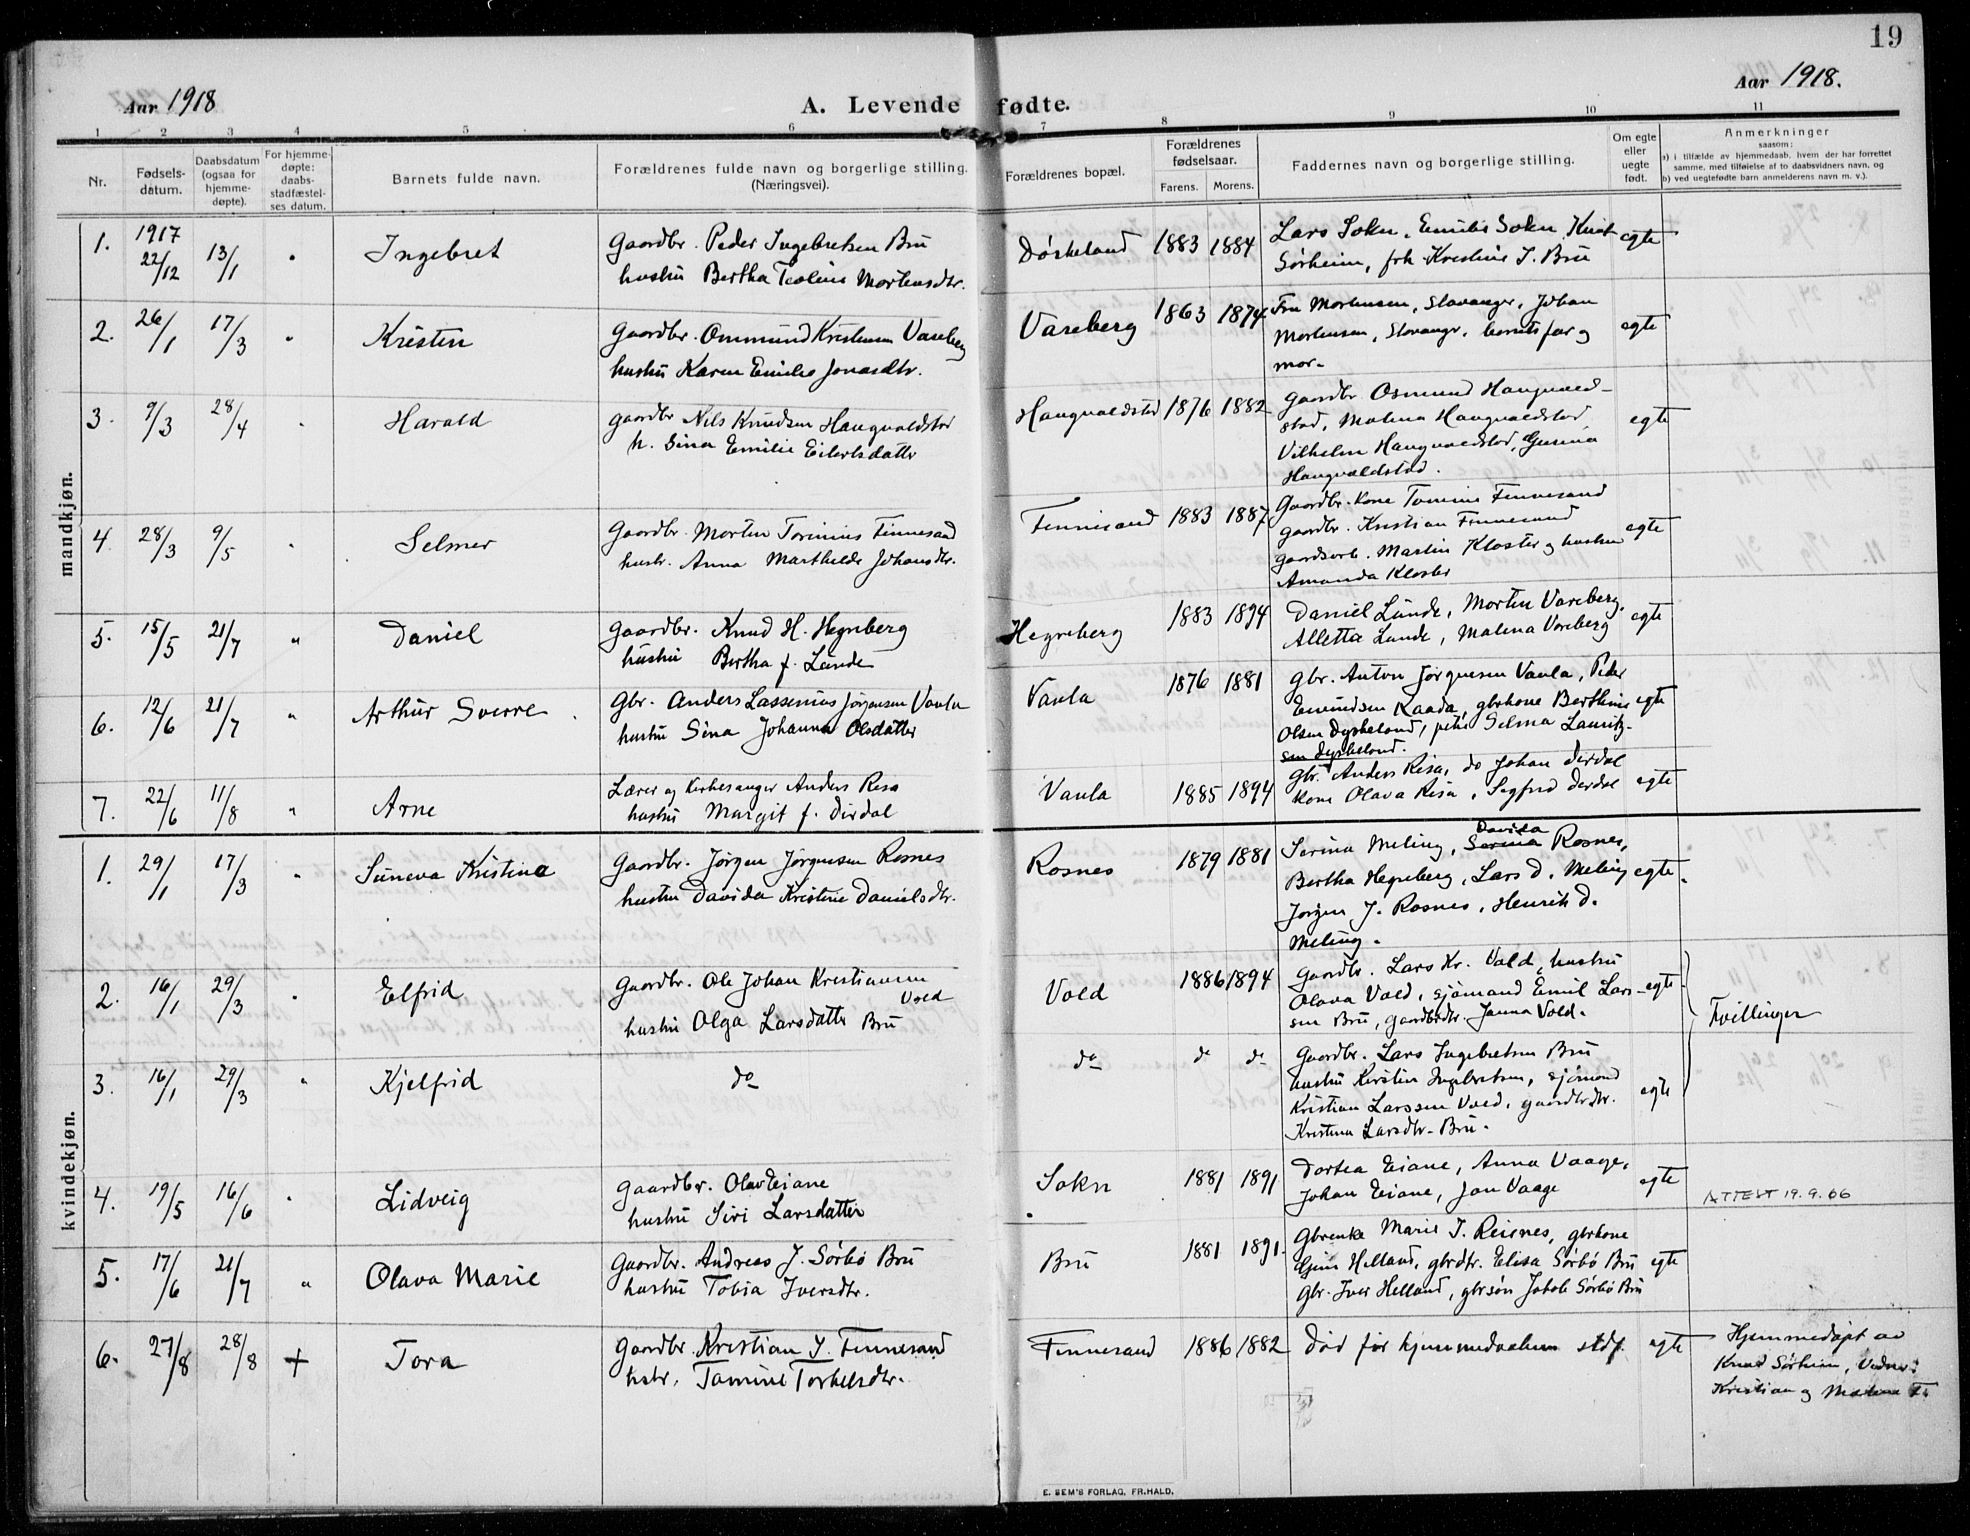 19
Aar 1918
A. Levende fødte.
Aar 1918.
1 2 3 4 5 6 7 8 9 10 11
Nr.
Fødsels-
datum.
Daabsdatum
(ogsaa for
hjemme-
døpte).
For hjemme-
døpte:
daabs-
stadfæstel-
ses datum.
Barnets fulde navn.
Forældrenes fulde navn og borgerlige stilling.
(Næringsvei).
Forældrenes bopæl.
Forældrenes
fødselsaar.
Farens. Morens.
Faddernes navn og borgerlige stilling.
Om egte
eller
uegte
født.
Anmerkninger
saasom:
a) i tilfælde av hjemmedaab, hvem der har forrettet
samme, med tilføielse af to daabsvidners navn, og
b) ved uegtefødte barn anmelderens navn m. v.).
mandkjøn.
1. 1917 22/12 13/1 " Ingebret
Gaardbr. Peder Ingebretsen Bru
hustru Bertha Teoline Mortensdtr.
Dörkeland 1883 1884
Lars Sokn, Emilie Sokn, Knut
Sörheim, frk Kristine I. Bru
egte
2. 26/1 17/3 " Kristen
Gaardbr. Ommund Kristensen Vareberg
hustru Karen Emilie Jonasdtr.
Vareberg 1863 1874
Fru Mortensen, Stavanger, Johan
Mortensen, Stavangr, barnets far og
mor.
egte
3. 9/3 28/4 " Harald
gaardbr Nils Knudsen Haugvaldstad
h. Sina Emilie Eilertsdatter
Haugvaldstad 1876 1882
gaardbr. Osmund Haugvald-
stad, Malena Haugvaldstad,
Vilhelm Haugvaldstad, Gurina
Haugvaldstad.
egte
4. 28/3 9/5 " Selmer
Gaardbr. Morten Tominius Finnesand
hustr. Anna Marthilde Johansdtr.
Finnesand 1883 1887
Gaardbr. kone Tomine Finnesand
gaardbr. Kristian Finnesand
gaardsarb. Martin Kloster og hustru
Amanda Kloster
egte
5. 15/5 21/7 " Daniel
Gaardbr. Knud H. Hegreberg
hustru Bertha f. Lunde
Hegreberg 1883 1894
Daniel Lunde, Morten Vareberg,
Alletta Lunde, Malena Vareberg
egte
6. 12/6 21/7 " Arthur Sverre
Gbr. Anders Lassenius Jørgensen Vaula
hustru Sina Johanna Olsdatter
Vaula 1876 1881
gbr. Anton Jørgensen Vaula, Peder
Enundsen Raada, gbrkone Berthine
Olsen Dyskeland, pike Selma Lauritz-
sen Dyskeland.
egte
7. 22/6 11/8 " Arne
Lærer og kirkesanger Anders Risa
hustru Margit f. Dirdal
Vaula 1885 1894
Gbr. Anders Risa, do Johan Dirdal
kone Olava Risa, Sigfrid Dirdal
egte
kvindekjøn.
1. 29/1 17/3 " Suneva Kristina
Gaardbr. Jörgen Jörgensen Rosnes
hustru Davida Kristine Danielsdtr.
Rosnes 1879 1881
Davida
Serina Meling, Serina Rosnes,
Bertha Hegreberg, Lars D. Meling
Jörgen J. Rosnes, Henrik D.
Meling.
egte.
2. 16/1 29/3 " Elfrid
Gaardbr. Ole Johan Kristiansen
Vold
hustru Olga Larsdatter Bru
Vold 1886 1894
Gaardbr. Lars Kr. Vold, hustru
Olava Vold, sjömand Emil Lars-
sen Bru, gaardbrdtr. Janna Vold.
egte.
Tvillinger
3. 16/1 29/3 " Kjelfrid
do
do do do
Gaardbr. Lars Ingebretsen Bru
hustru Kirstin Ingebretsen, sjömand
Kristian Larssen Vold, gaardbrdtr.
Kristina Larsdtr. Bru.
egte
4. 19/5 16/6 " Lidveig
Gaardbr. Olav Eiane
hustru Siri Larsdatter
Sokn 1881 1891
Dortea Eiane, Anna Vaage,
Johan Eiane, Jon Vaage
egte
ATTEST 19.9.66
5. 17/6 21/7 " Olava Marie
Gaardbr. Andreas J. Sørbø Bru
hustru Tobia Iversdtr.
Bru 1881 1891.
Gbrenke Marie I. Reienes, gbrkone
Helland, gbrdtr. Elisa Sørbø Bru
Gbr. Iver Helland, gbrsön Jakob Sørbø Bru
egte
6. 27/8 28/8 + Tora
Gaardbr. Kristian Y. Finnesand
hstr. Tomine Torkelsdtr.
Finnesand 1886 1882
Död för hjemmedaaben stdf.
egte
Hjemmedøpt av
Knud Sörheim, Vidner:
Kristian og Malena F.
E. SEM'S FORLAG, FR.HALD.